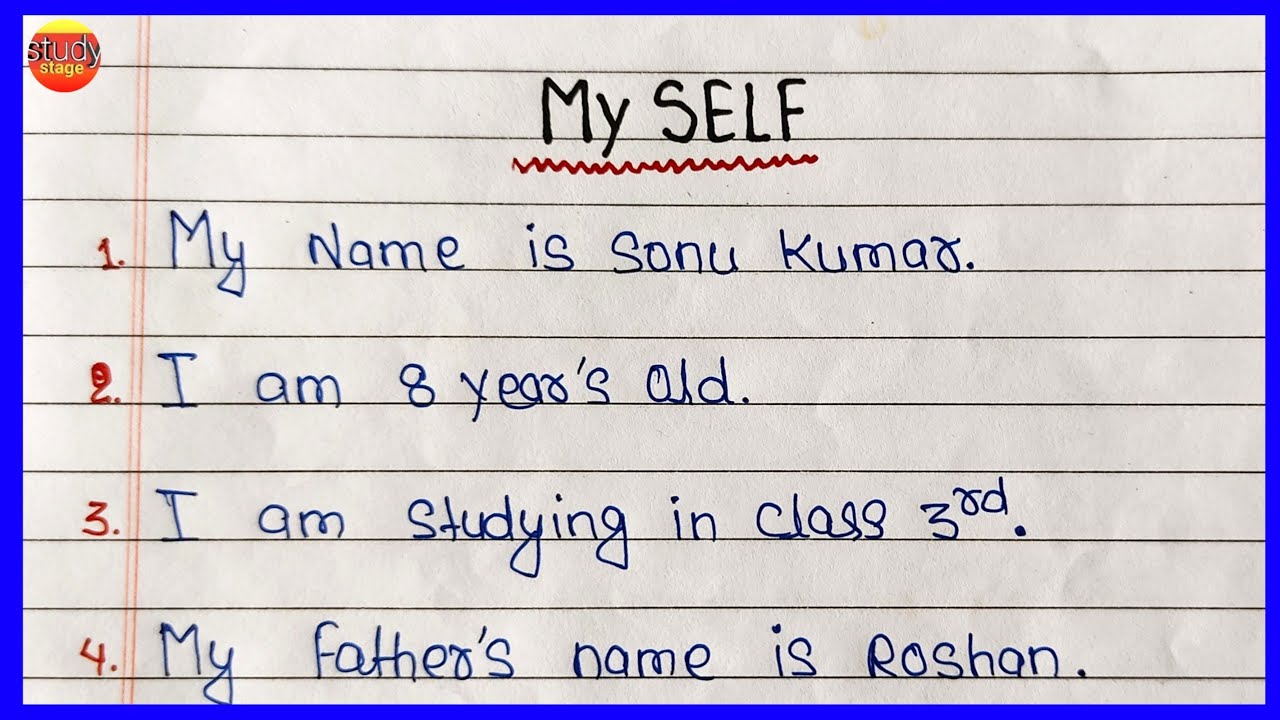 study
stage
My SELF
1. My Name is Sonu Kumar.
2. I am 8 year's old.
3. I am studying in class 3rd.
4. My father's name is Roshan.